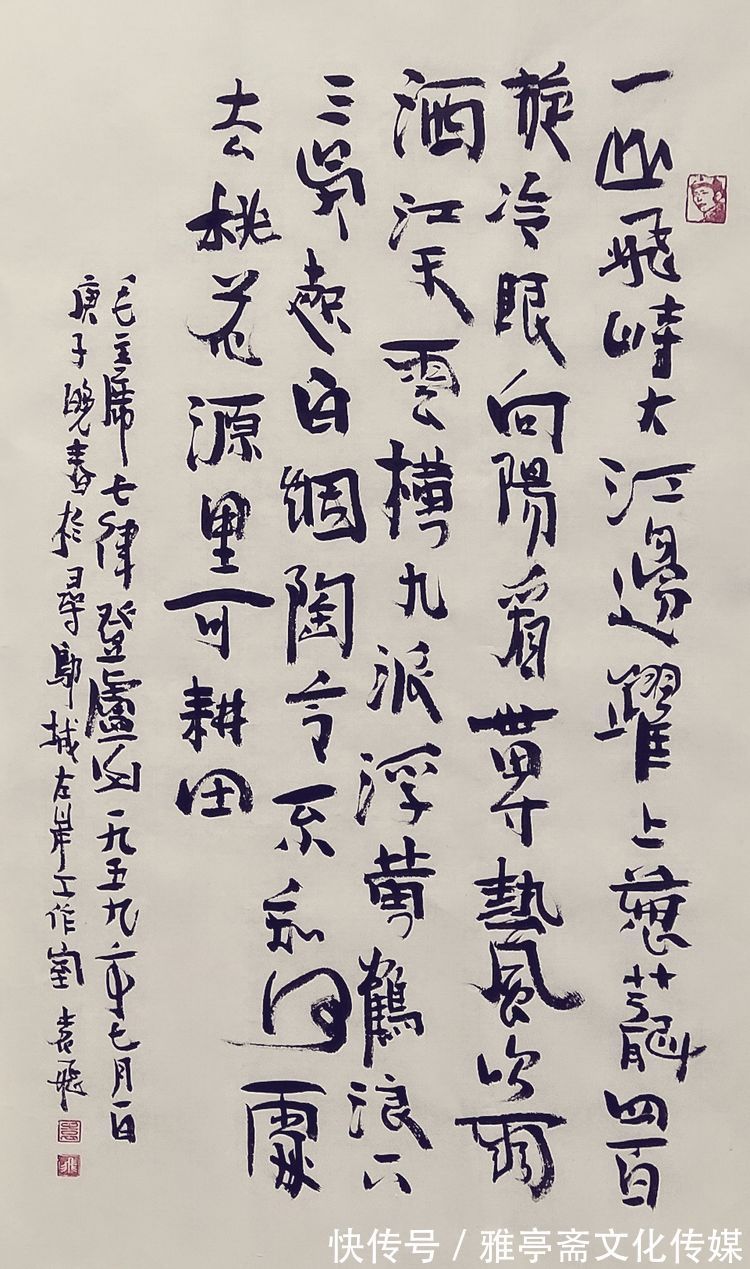 一山飛峙大江邊躍上蔥蘢四百
旋冷眼向陽看世界熱風吹雨
洒江天雲横九派浮黄鶴浪下
三吳起白烟陶令不知何處
去桃花源里可耕田
毛主席七律登廬山一九五九年七月一日
庚子晚春於尋城左岸工作室 袁飛
快传号 / 雅亭斋文化传媒